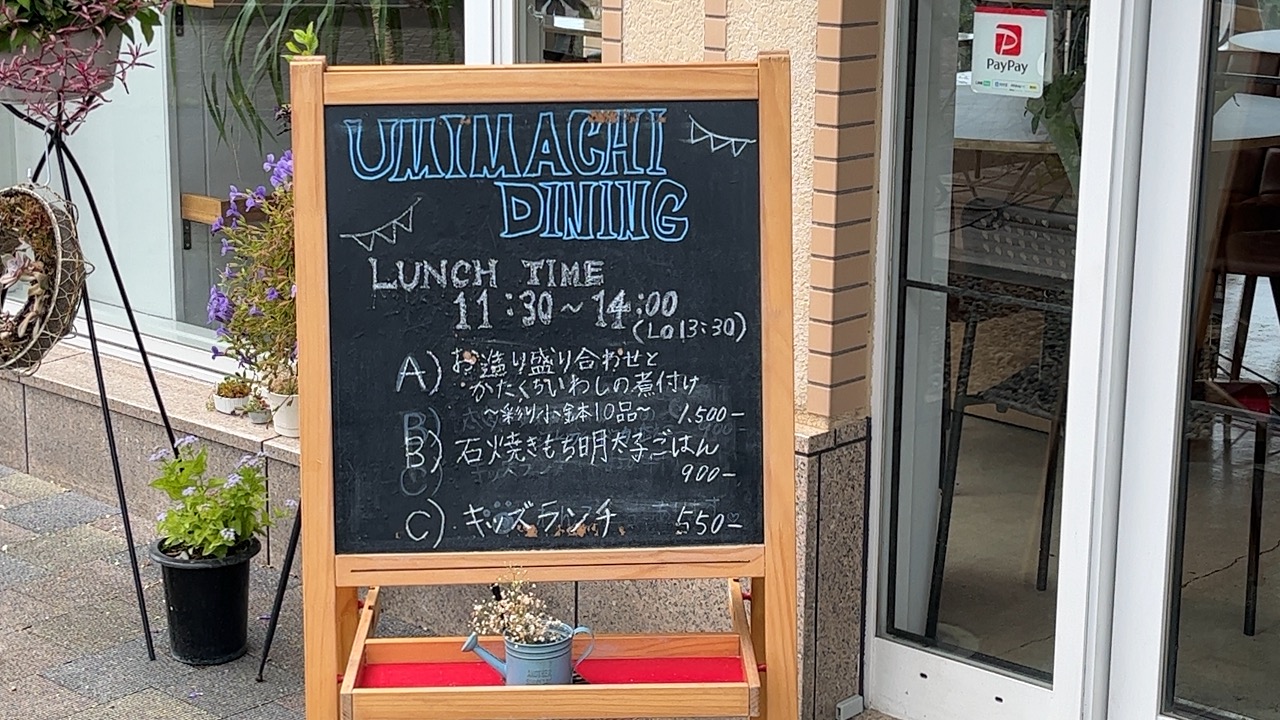 UMIMACHI
DINING
LUNCH TIME
11:30~14:00
(LO 13:30)
A) お造り盛り合わせと
・かたくちいわしの煮付け
~彩り小鉢10品~ 1.500-
B) 石火焼きもち明太子ごはん
900-
C) キッズランチ 550-
PayPay